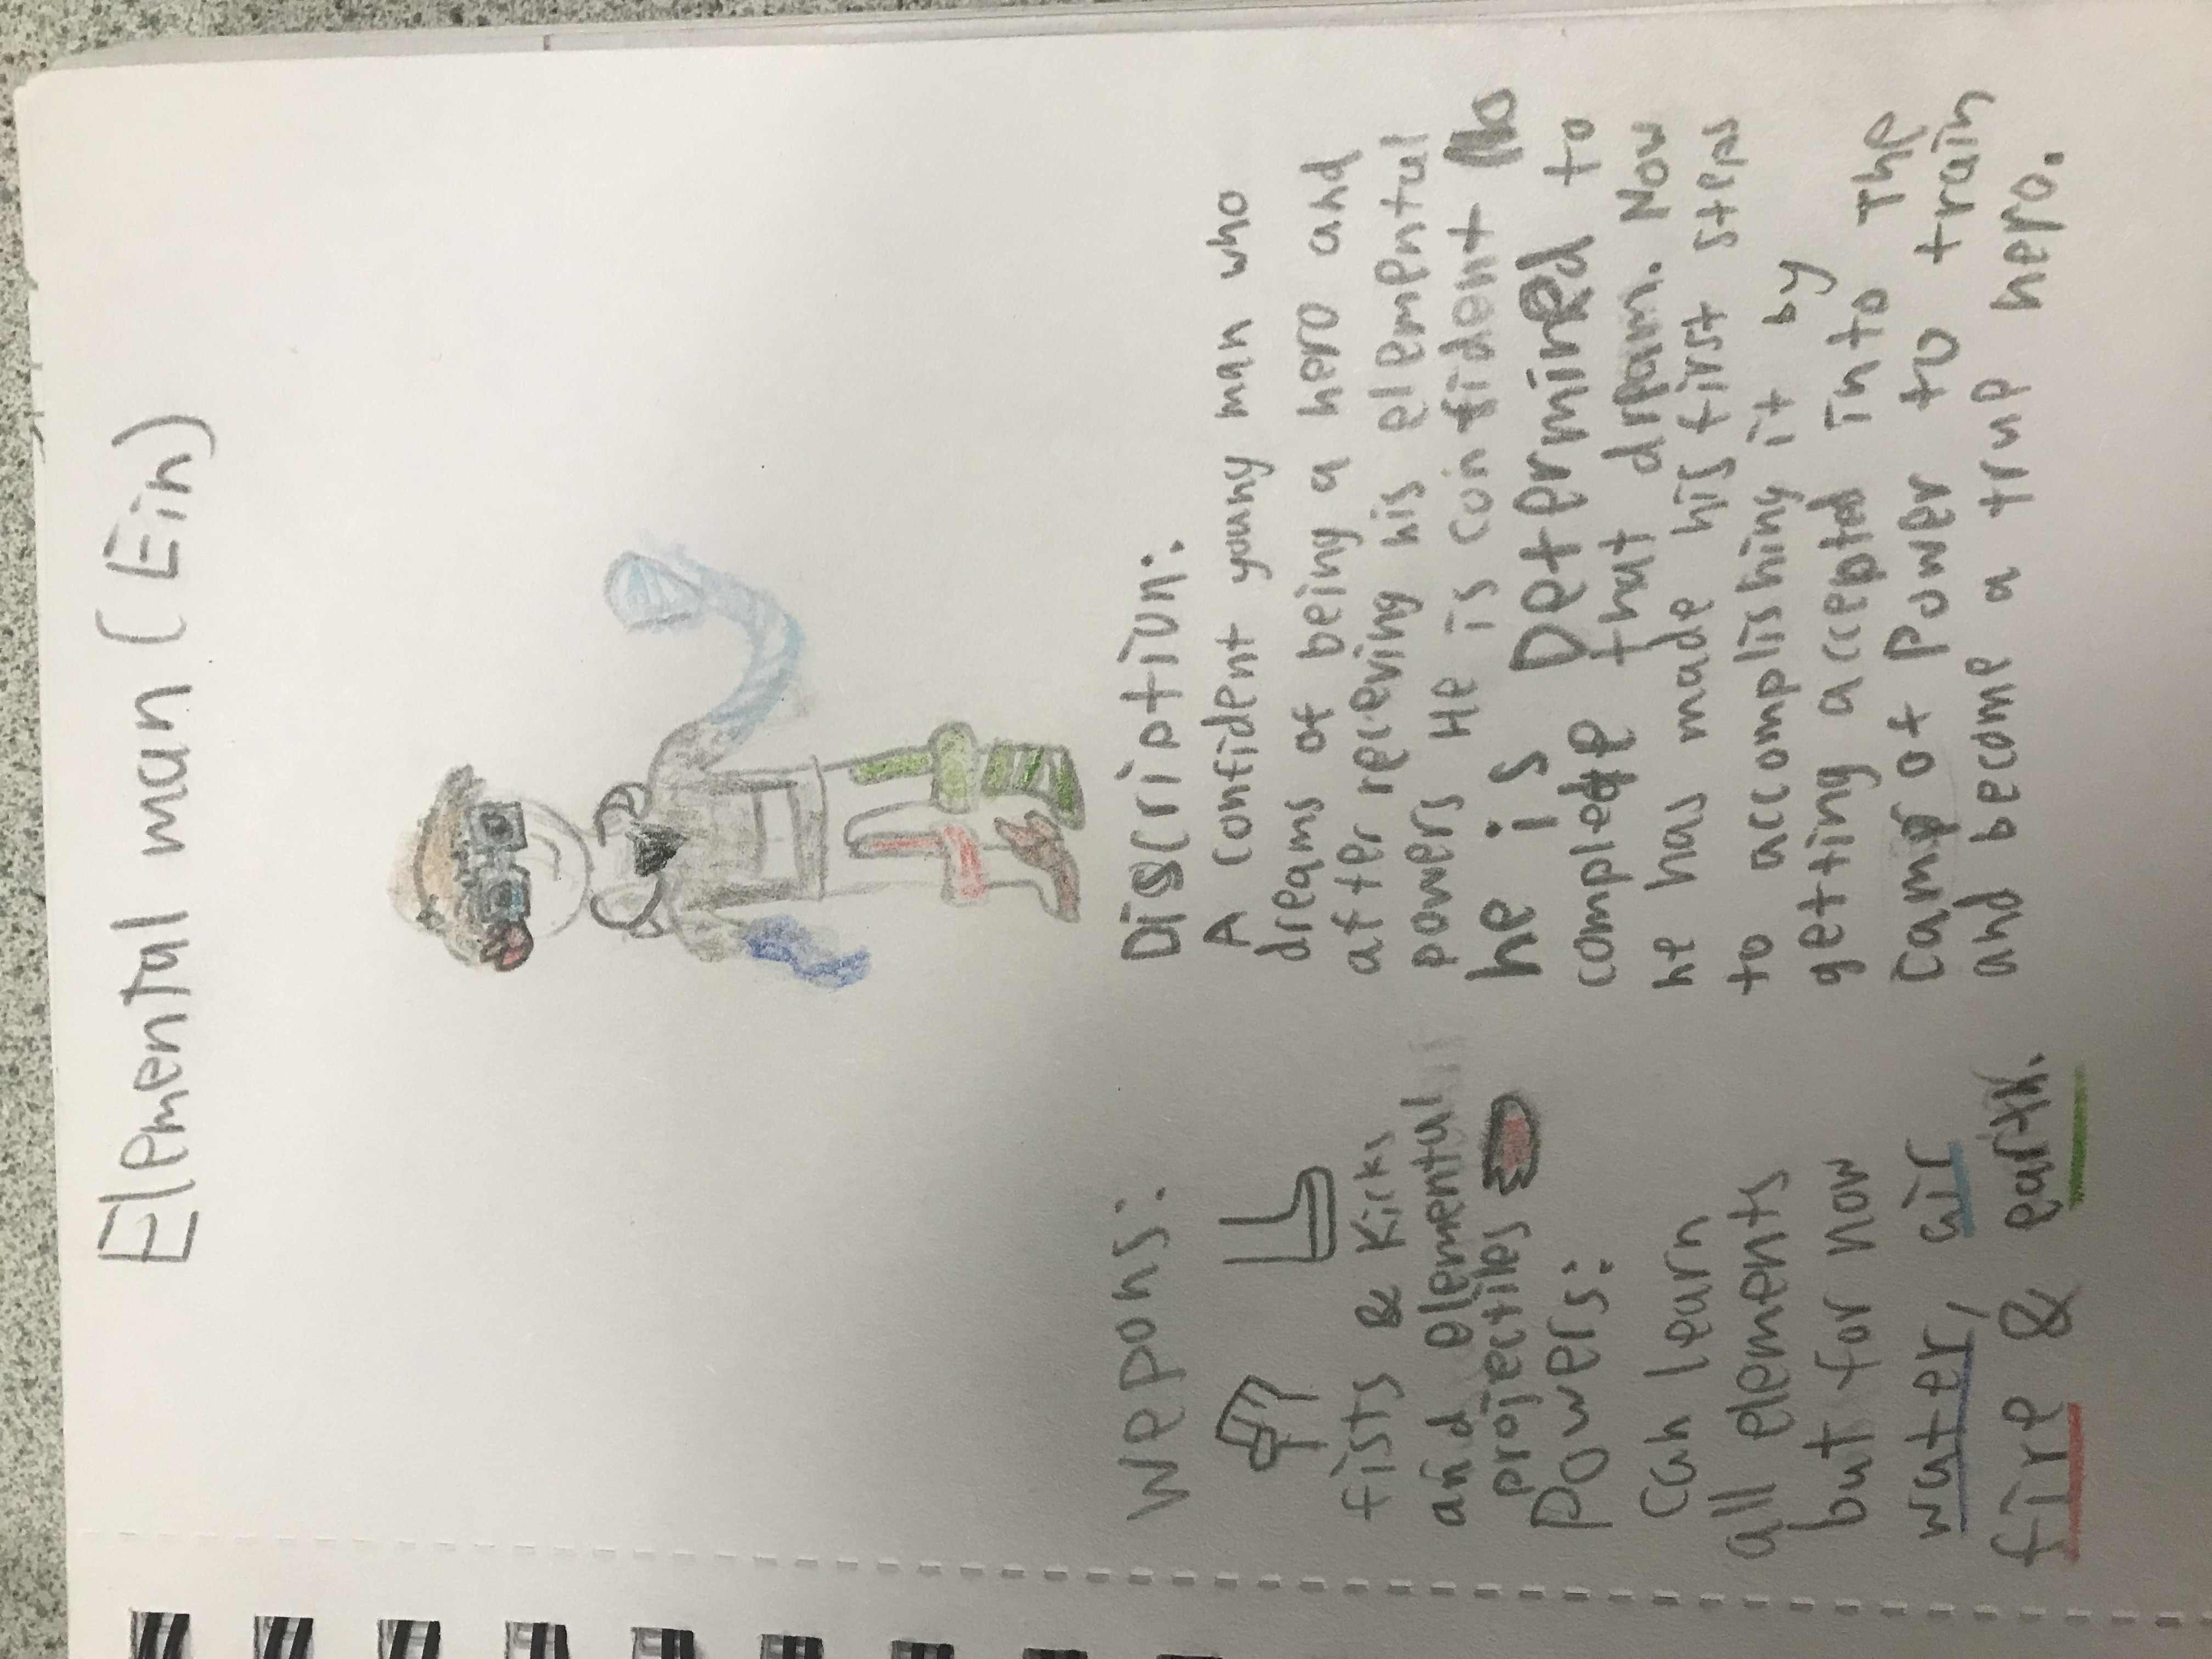 Elemental man (Ein)
Wepons:
fists & Kicks
and elemental
projectiles
Powers:
can learn
all elements
but for now
water, air
fire & earth.
Discription:
A confident young man who
dreams of being a hero and
after receving his elemental
powers He is confident No
he is Determined to
complete that dream. Now
he has made his first steps
to accomplishing it by
getting accepted into The
camp of Power to train
and become a true hero.